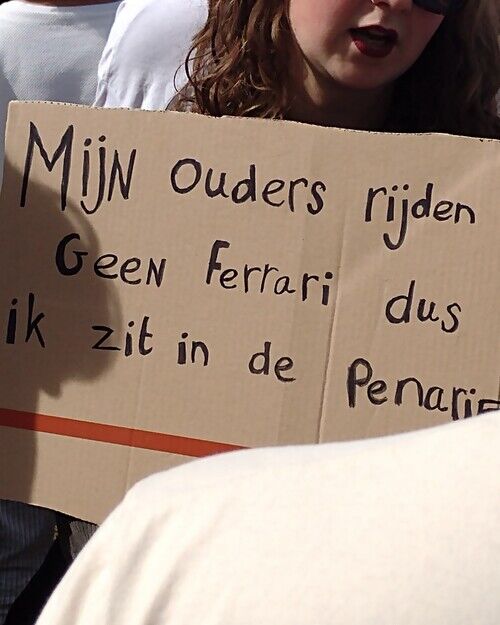 MijN ouders rijden
GeeN Ferrari dus
ik zit in de Penarie